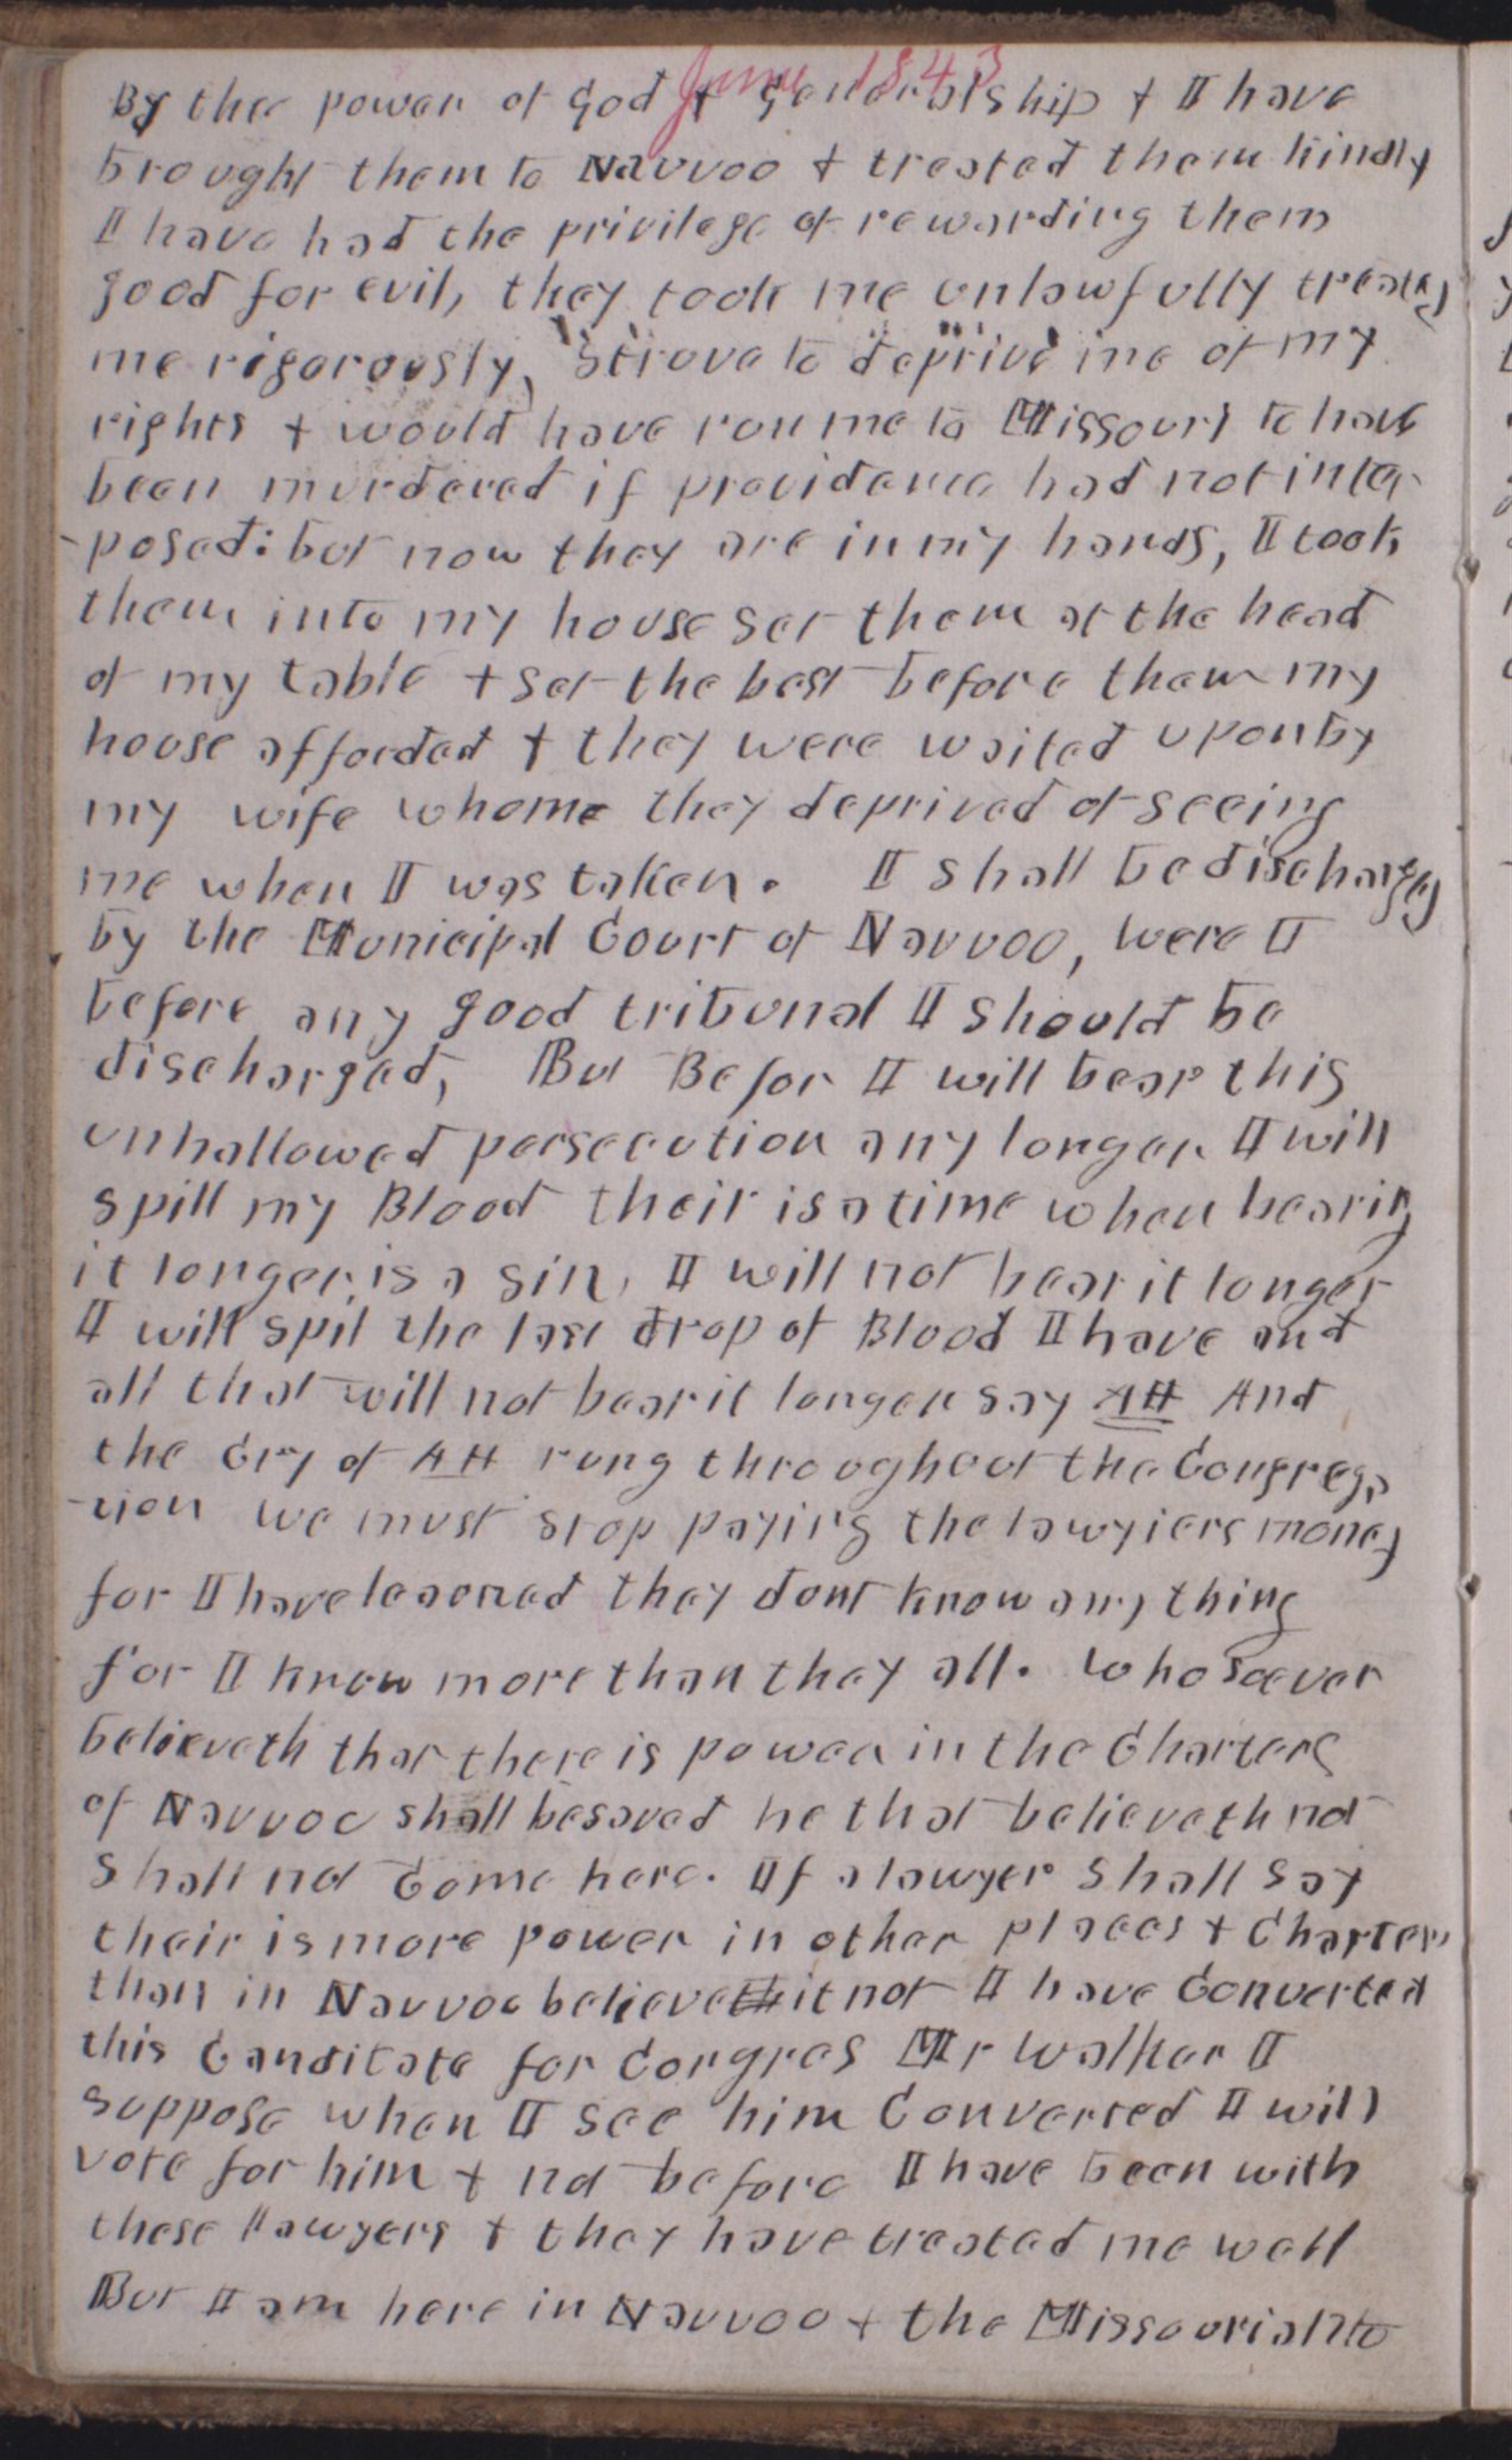 June 1843
By the power of God & Generalship & I have
brought them to Nauvoo & treated them kindly
I have had the privilege of rewarding them
good for evil, they took me unlawfully treated
me rigorously, strove to deprive me of my
rights & would have run me to Missouri to have
been murdered if providence had not inter
-posed: but now they are in my hands, I took
them into my house set them at the head
of my table & set the best before them my
house afforded & they were waited upon by
my wife whome they deprived of seeing
me when I was taken. I shall be discharged
by the Municipal Court of Nauvoo, were I
before any good tribunal I should be
discharged, But Befor I will bear this
unhallowed persecution any longer I will
spill my Blood their is a time when bearing
it longer is a sin, I will not bear it longer
I will spil the last drop of Blood I have and
all that will not bear it longer say AH And
the Cry of AH rung throughout the Congrega
-tion we must stop paying the lawyiers money
for I have learned they dont know any thing
for I know more than they all. Whosoever
believeth that there is power in the Charters
of Nauvoo shall be saved he that believeth not
shall not come here. If a lawyer shall say
their is more power in other places & Charters
than in Nauvoo believeth it not I have Converted
this Canditate for Congres Mr Walker I
suppose when I see him Converted I will
vote for him & not before I have been with
these lawyers & they have treated me well
But I am here in Nauvoo & the Missourians to